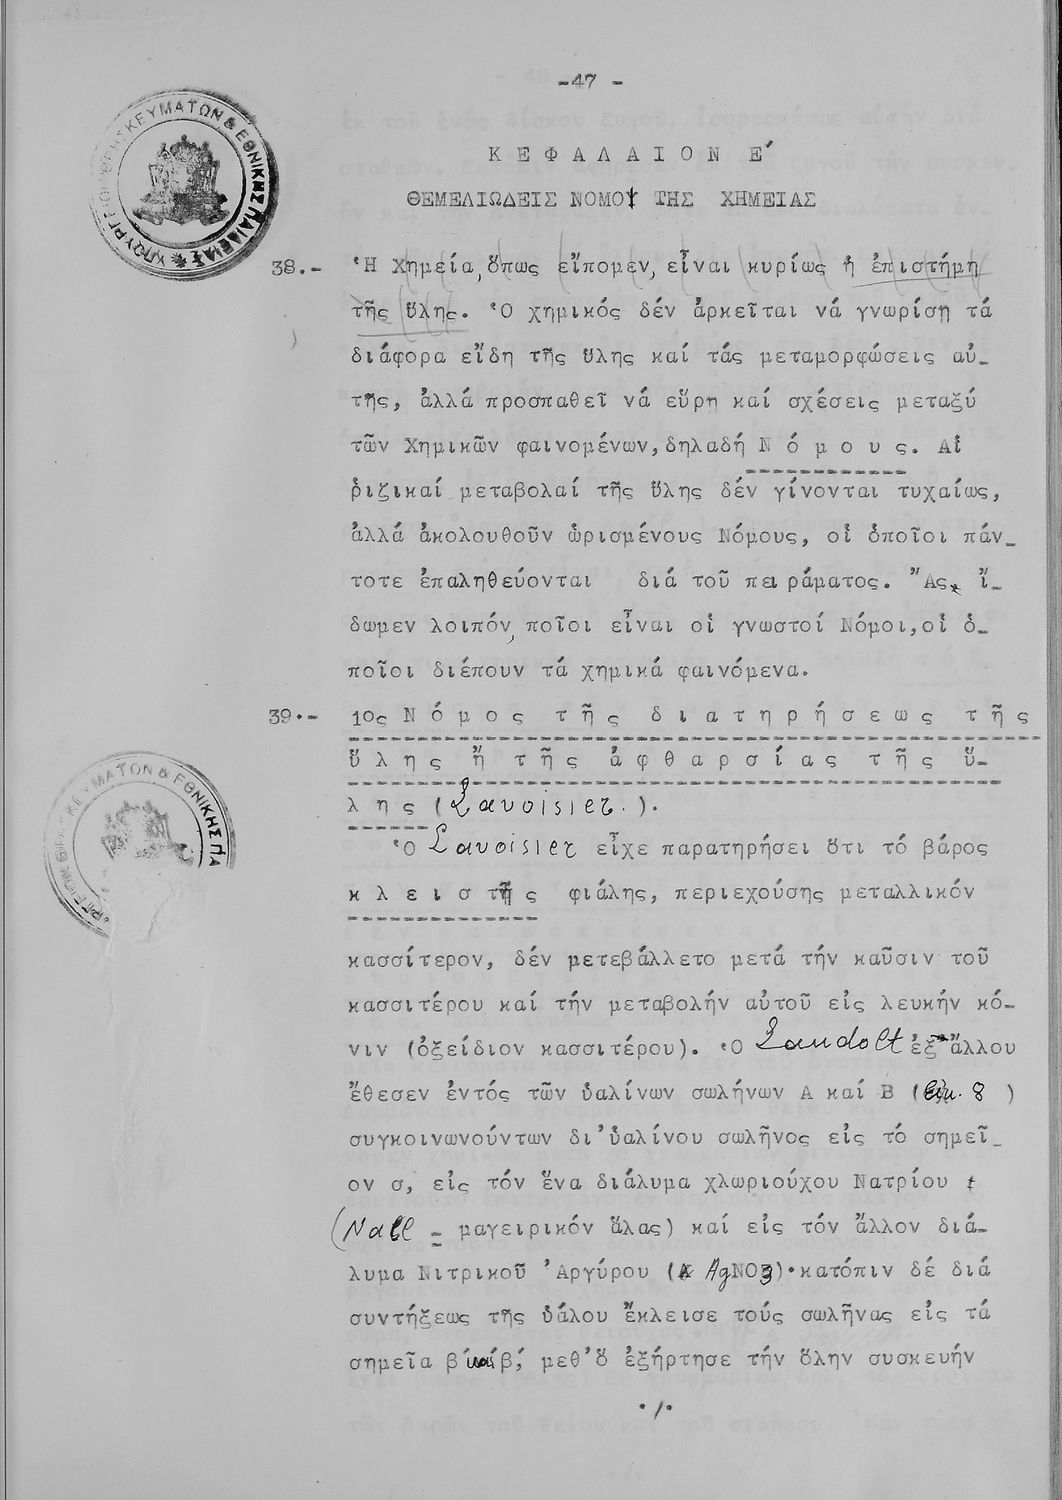 -47 -
ΥΠΟΥΡΓΕΙΟΝ ΘΡΗΣΚΕΥΜΑΤΩΝ & ΕΘΝΙΚΗΣ ΠΑΙΔΕΙΑΣ
Κ Ε Φ Α Λ Α Ι Ο Ν Ε΄
ΘΕΜΕΛΙΩΔΕΙΣ ΝΟΜΟΙ ΤΗΣ ΧΗΜΕΙΑΣ
38.- Ἡ Χημεία, ὅπως εἴπομεν, εἶναι κυρίως ἡ ἐπιστήμη
τῆς ὕλης. Ὁ χημικός δέν ἀρκεῖται νά γνωρίσῃ τά
διάφορα εἴδη τῆς ὕλης καί τάς μεταμορφώσεις αὐ-
τῆς, ἀλλά προσπαθεῖ νά εὕρῃ καί σχέσεις μεταξύ
τῶν Χημικῶν φαινομένων, δηλαδή Ν ό μ ο υ ς. Αἱ
ῥιζικαί μεταβολαί τῆς ὕλης δέν γίνονται τυχαίως,
ἀλλά ἀκολουθοῦν ὡρισμένους Νόμους, οἱ ὁποῖοι πάν-
τοτε ἐπαληθεύονται διά τοῦ πειράματος. Ἄς ἴ-
δωμεν λοιπόν, ποῖοι εἶναι οἱ γνωστοί Νόμοι, οἱ ὁ-
ποῖοι διέπουν τά χημικά φαινόμενα.
39.- 1ος Ν ό μ ο ς τ ῆ ς δ ι α τ η ρ ή σ ε ω ς τ ῆ ς
ὕ λ η ς ἤ τ ῆ ς ἀ φ θ α ρ σ ί α ς τ ῆ ς ὕ-
λ η ς (Lavoisier.).
ΘΡΗΣΚΕΥΜΑΤΩΝ & ΕΘΝΙΚΗΣ ΠΑ
Ὁ Lavoisier εἶχε παρατηρήσει ὅτι τό βάρος
κ λ ε ι σ τῆ ς φιάλης, περιεχούσης μεταλλικόν
κασσίτερον, δέν μετεβάλλετο μετά τήν καῦσιν τοῦ
κασσιτέρου καί τήν μεταβολήν αὐτοῦ εἰς λευκήν κό-
νιν (ὀξείδιον κασσιτέρου). Ὁ Landolt ἐξ ἄλλου
ἔθεσεν ἐντός τῶν ὑαλίνων σωλήνων Α καί Β (εἰκ. 8 )
συγκοινωνούντων δι'ὑαλίνου σωλῆνος εἰς τό σημεῖ-
ον σ, εἰς τόν ἕνα διάλυμα χλωριούχου Νατρίου
(NaCl = μαγειρικόν ἅλας) καί εἰς τόν ἄλλον διά-
λυμα Νιτρικοῦ Ἀργύρου (AgNO3)·κατόπιν δέ διά
συντήξεως τῆς ὑάλου ἔκλεισε τούς σωλῆνας εἰς τά
σημεῖα β καί β, μεθ'ὅ ἐξήρτησε τήν ὅλην συσκευήν
·/·